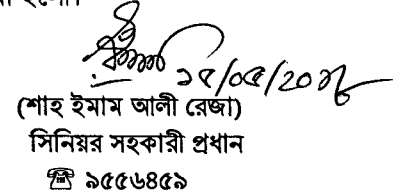 ১৫/০৫/২০১৮
(শাহ ইমাম আলী রেজা)
সিনিয়র সহকারী প্রধান
☎ ৯৫৫৬৪৫৯